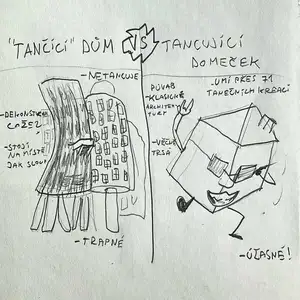 "TANČÍCÍ" DŮM VS TANCUJÍCÍ
DOMEČEK
-NETANCUJE
-DEKONSTRUK
COŽE?
-STOJÍ
NA MÍSTĚ
JAK SLOUP
-TRAPNÉ
PŮVAB
KLASICKÉ
ARCHITEK
TURY
-VĚČNĚ
TRSÁ
-UMÍ PŘES 71
TANEČNÍCH KREACÍ
-ÚŽASNÉ!